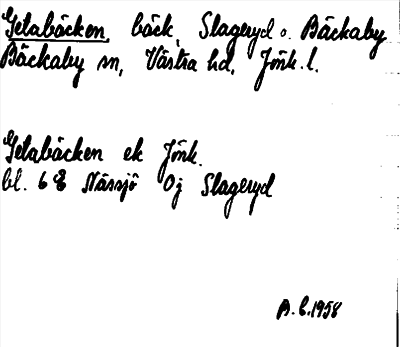 Getabäcken, bäck, Slageryd o. Bäckaby
Bäckaby sn, Västra hd, Jönk. l.
Getabäcken ek Jönk.
bl. 68 Nässjö Oj Slageryd
A.C. 1958